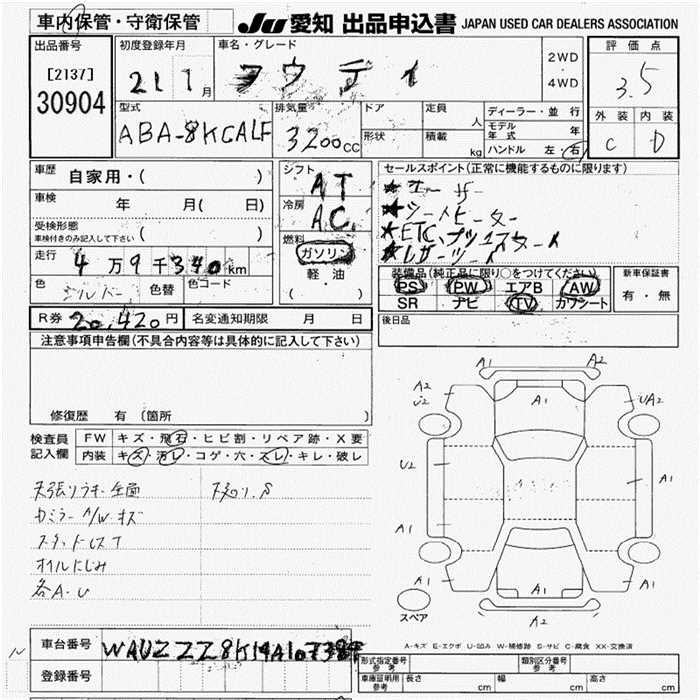 車内保管・守衛保管
JU 愛知 出品申込書 JAPAN USED CAR DEALERS ASSOCIATION
出品番号
[2137]
30904
初度登録年月
21 1月
車名・グレード
アウディ
2WD
・
4WD
評価点
3.5
外装 内装
C D
型式
ABA-8KCALF
排気量
3200cc
ドア
形状
定員 人
積載 kg
ディーラー・並行
モデル年式 年
ハンドル 左・右
車歴
自家用・( )
車検
年 月( 日)
受検形態
車検付きのみ記入して下さい ( )
走行
4万9千340km
色
シルバー
色替
色コード
シフト
AT
冷房
AC
燃料
ガソリン
軽・油
( )
セールスポイント(正常に機能するものに限ります)
★シートヒーター
★ETC、プッシュスタート
★レザーシート
装備品(純正品に限り○をつけてください)
PS PW エアB AW
SR ナビ TV カワシート
新車保証書
有・無
R券 20,420円
名変通知期限 月 日
後日品
注意事項申告欄(不具合内容等は具体的に記入して下さい)
修復歴 有(箇所 )
検査員
記入欄
FW キズ・飛石・ヒビ割・リペア跡・X要
内装 キズ・汚レ・コゲ・穴・スレ・キレ・破レ
天張りウキ全面
下廻りS
カミラーA/Wキズ
オイルにじみ
各A・U
A1 A2
A2 A1 UA2
U2
U2 A1
A1
A1 A1 A1
A2
スペア
A-キズ E-エクボ U-凹み W-補修跡 S-サビ C-腐食 XX-交換済
車台番号
登録番号
形式指定番号
参考
類別区分番号
参考
車庫証明用
参考
長さ cm 幅 cm 高さ cm